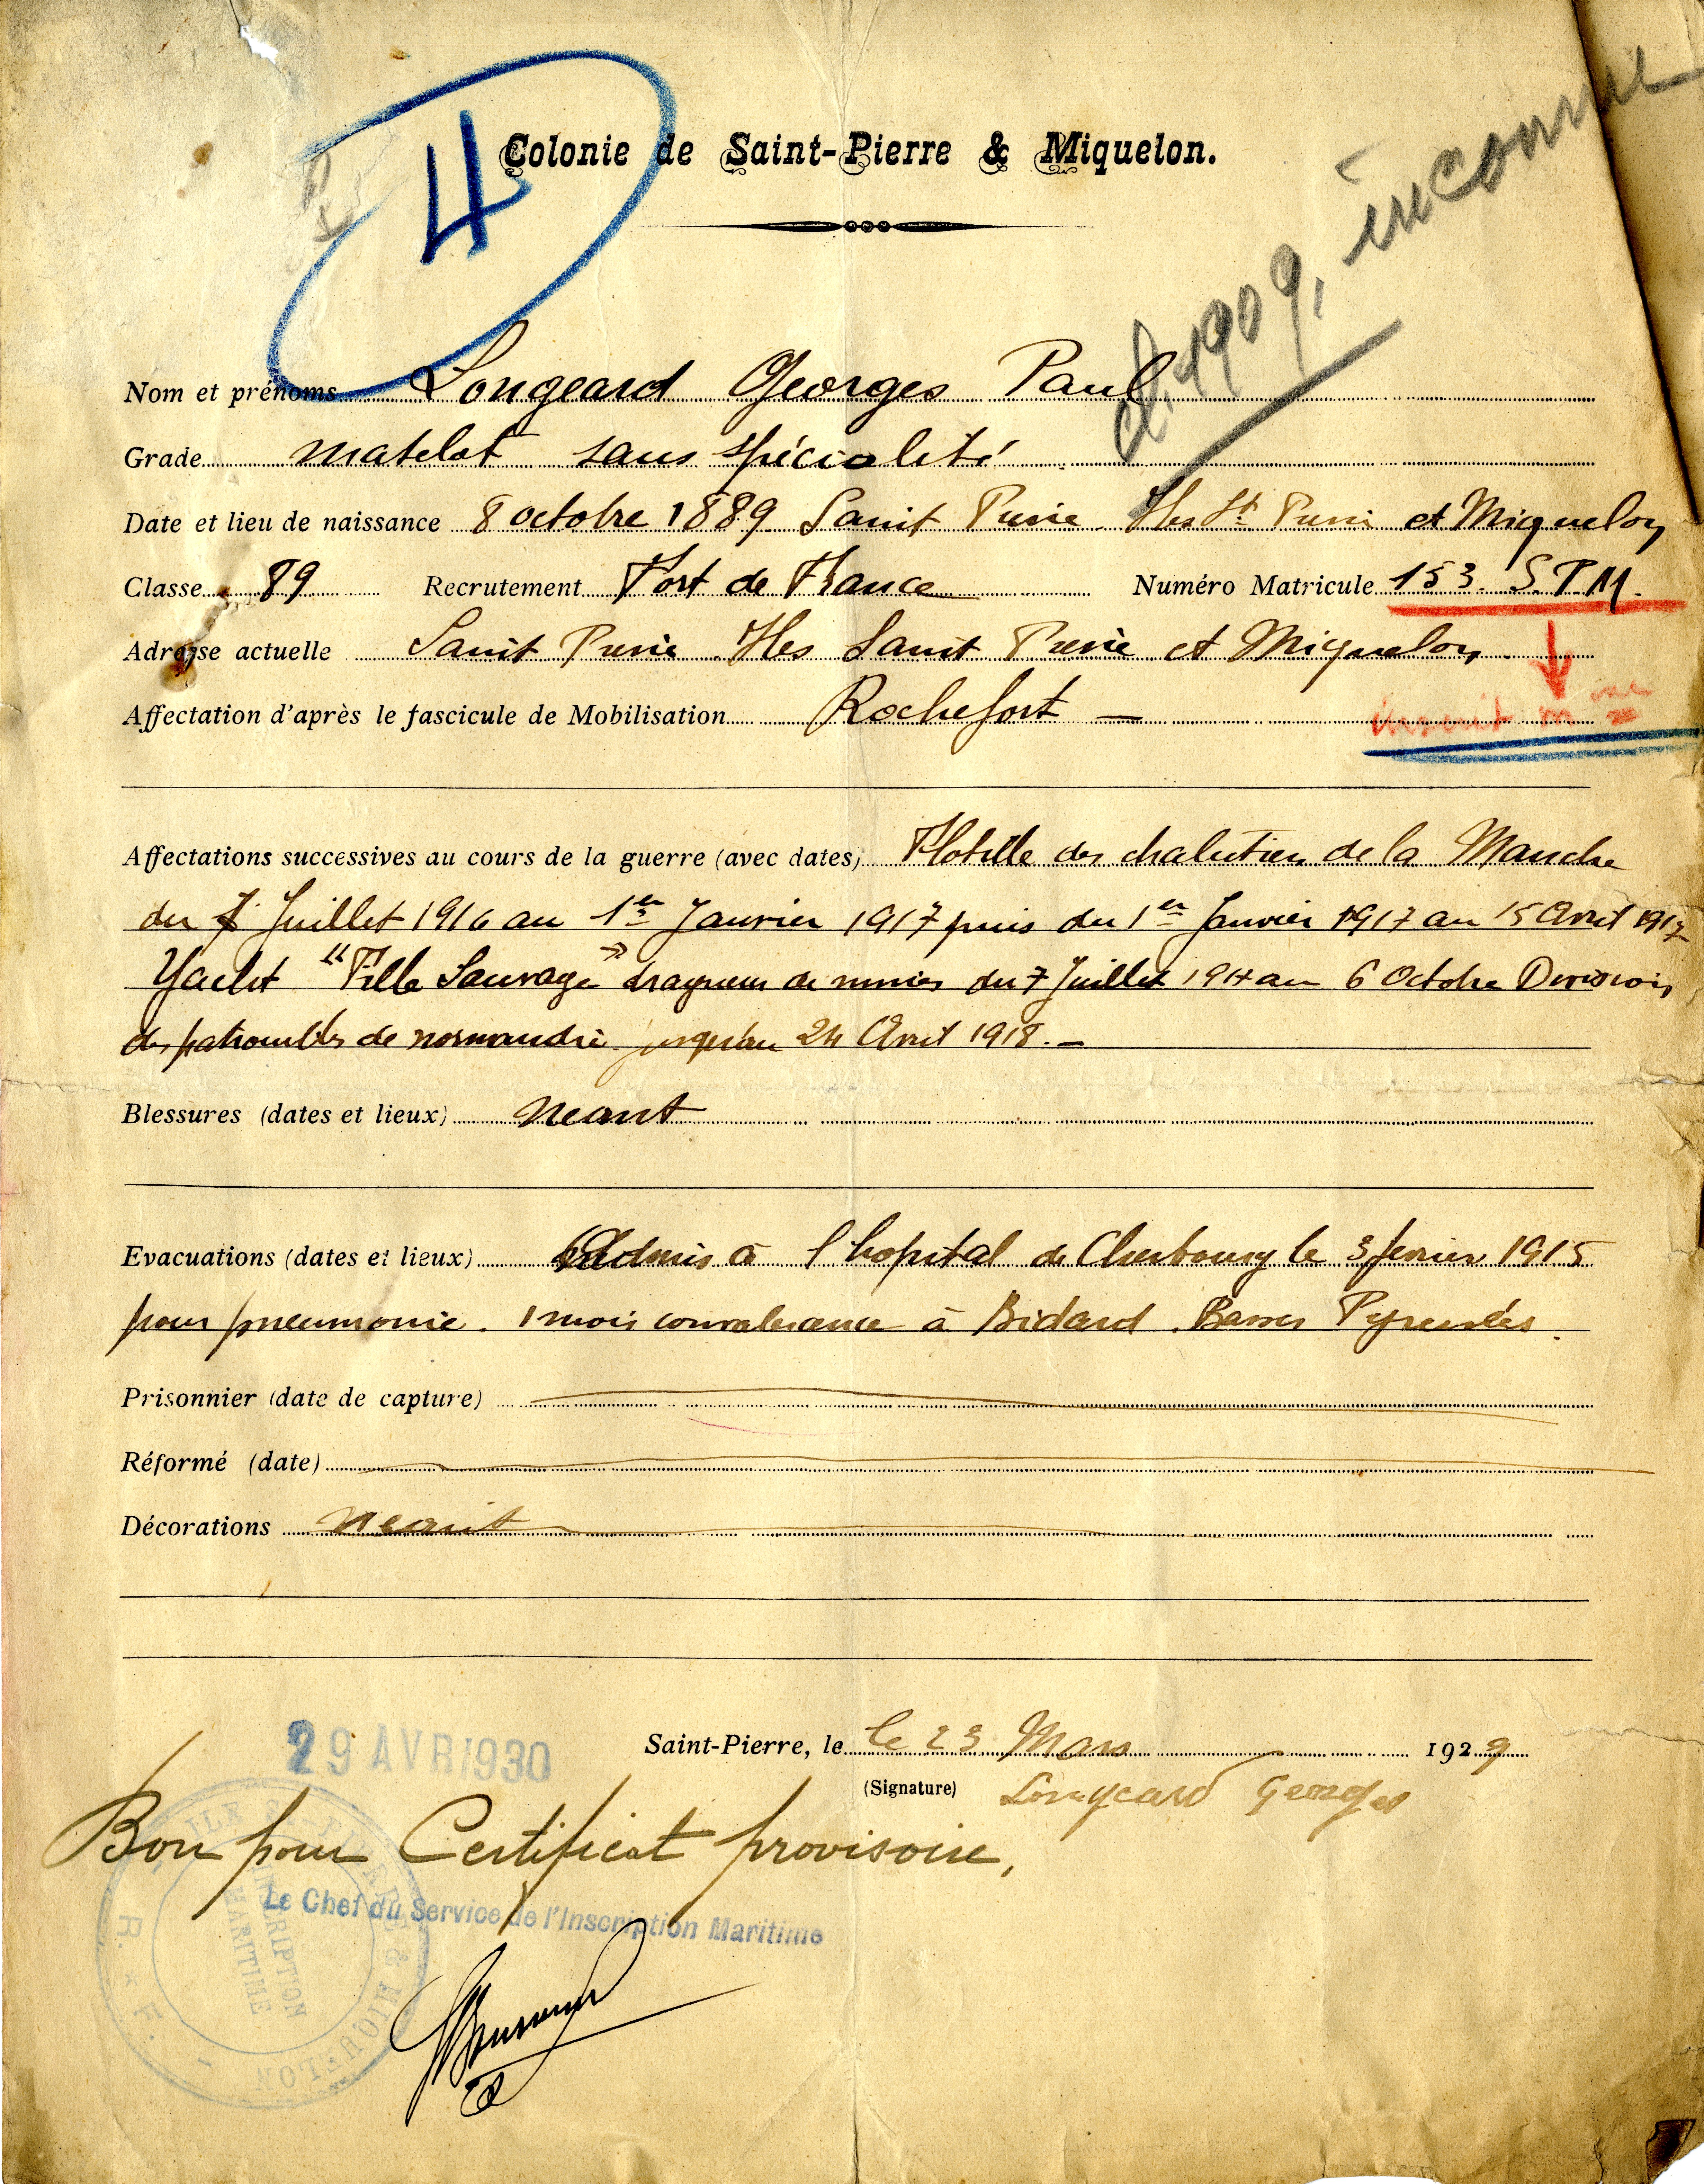 4
Colonie de Saint-Pierre & Miquelon.
cl. 1909, inconnu
Nom et prénoms Longeard Georges Paul
Grade matelot sans spécialité
Date et lieu de naissance 8 octobre 1889 Saint Pierre Iles St Pierre et Miquelon
Classe 89 Recrutement Fort de France Numéro Matricule 153. S.P.M.
Adresse actuelle Saint Pierre Iles Saint Pierre et Miquelon.
Affectation d'après le fascicule de Mobilisation Rochefort —
inscrit m me
Affectations successives au cours de la guerre (avec dates) Flotille des chalutiers de la Manche
du 7 Juillet 1916 au 1er Janvier 1917 puis du 1er Janvier 1917 au 15 Avril 1917
Yacht "Fille Sauvage" dragueur de mines du 7 Juillet 1917 au 6 Octobre Division
des patrouilles de normandie jusqu'au 24 Avril 1918. —
Blessures (dates et lieux) Neant
Evacuations (dates et lieux) Admis à l hopital de Cherbourg le 3 fevrier 1915
pour pneumonie. 1 mois convalescence à Bidard. Basses Pyrenées.
Prisonnier (date de capture)
Réformé (date)
Décorations Neant
29 AVR 1930
Saint-Pierre, le le 23 Mars 1929
(Signature) Longeard Georges
Bon pour Certificat provisoire,
Le Chef du Service de l'Inscription Maritime
ILE ST PIERRE & MIQUELON
INSCRIPTION
MARITIME
R. F.